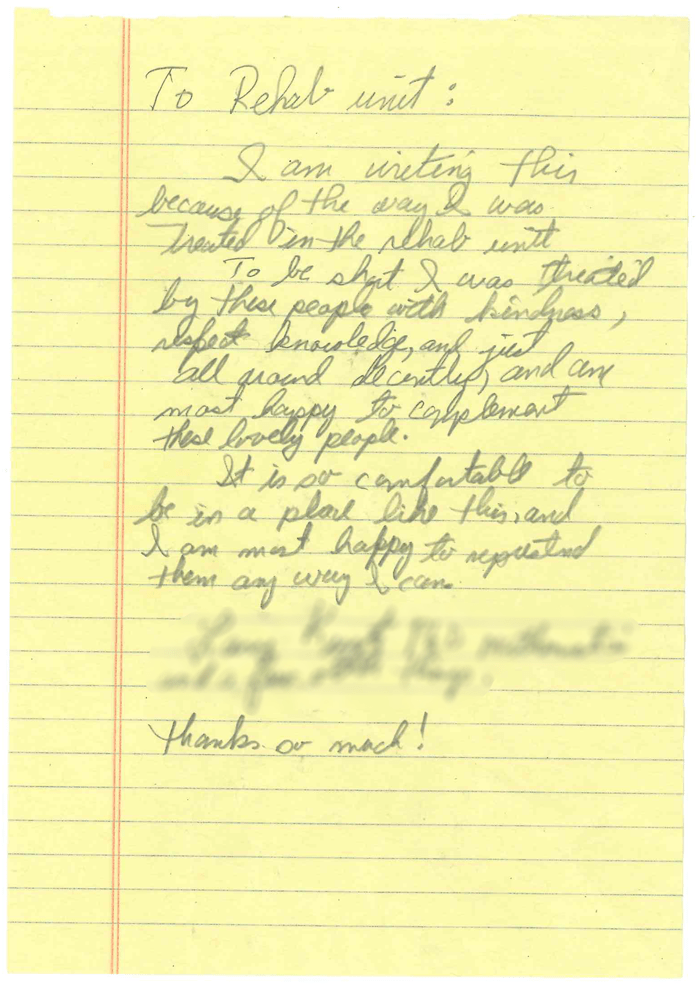 To Rehab unit:
I am writing this
because of the way I was
Treated in the rehab unit
To be short I was treated
by these people with kindness,
respect knowledge, and just
all around decently, and am
most happy to complement
these lovely people.
It is so comfortable to
be in a place like this, and
I am most happy to
them any way I can.
thanks so much!